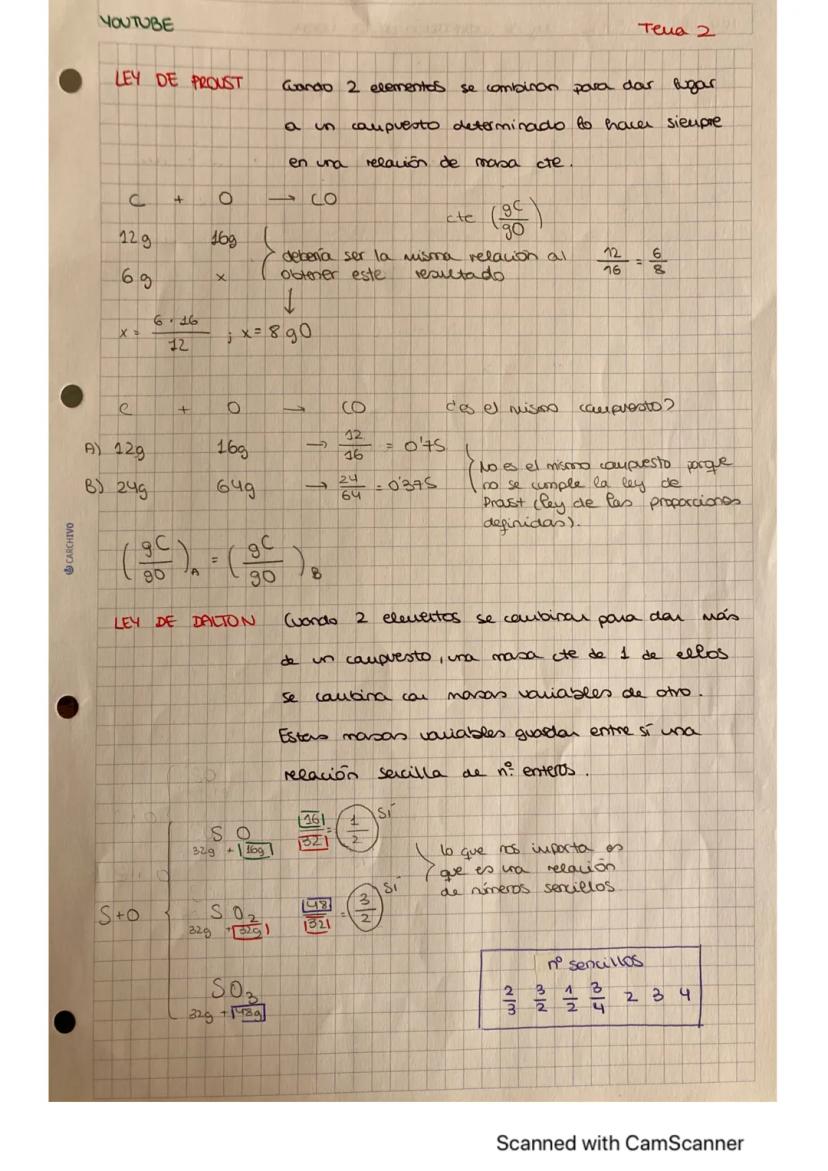 YOUTUBE
Tema 2
LEY DE PROUST Cuando 2 elementos se combinan para dar lugar
a un compuesto determinado lo hacen siempre
en una relación de masa cte.
C + O → CO
cte (gC/gO)
12g 16g
6g x
debería ser la misma relación al
obtener este resultado
12/16 = 6/8
x = 6·16/12 ; x = 8 gO
C + O → CO ¿es el mismo compuesto?
A) 12g 16g → 12/16 = 0'75
B) 24g 64g → 24/64 = 0'375
No es el mismo compuesto porque
no se cumple la ley de
Proust (ley de las proporciones
definidas).
(gC/gO)A = (gC/gO)B
CARCHIVO
LEY DE DALTON Cuando 2 elementos se combinan para dar más
de un compuesto, una masa cte de 1 de ellos
se combina con masas variables de otro.
Estas masas variables guardan entre sí una
relación sencilla de nº enteros.
S O 16/32 = 1/2 SÍ
32g + 16g
lo que nos importa es
que es una relación
de números sencillos
S+O
S O2 48/32 = 3/2 SÍ
32g + 32g
SO3
32g + 48g
nº sencillos
2/3 3/2 1/2 3/4 2 3 4
Scanned with CamScanner